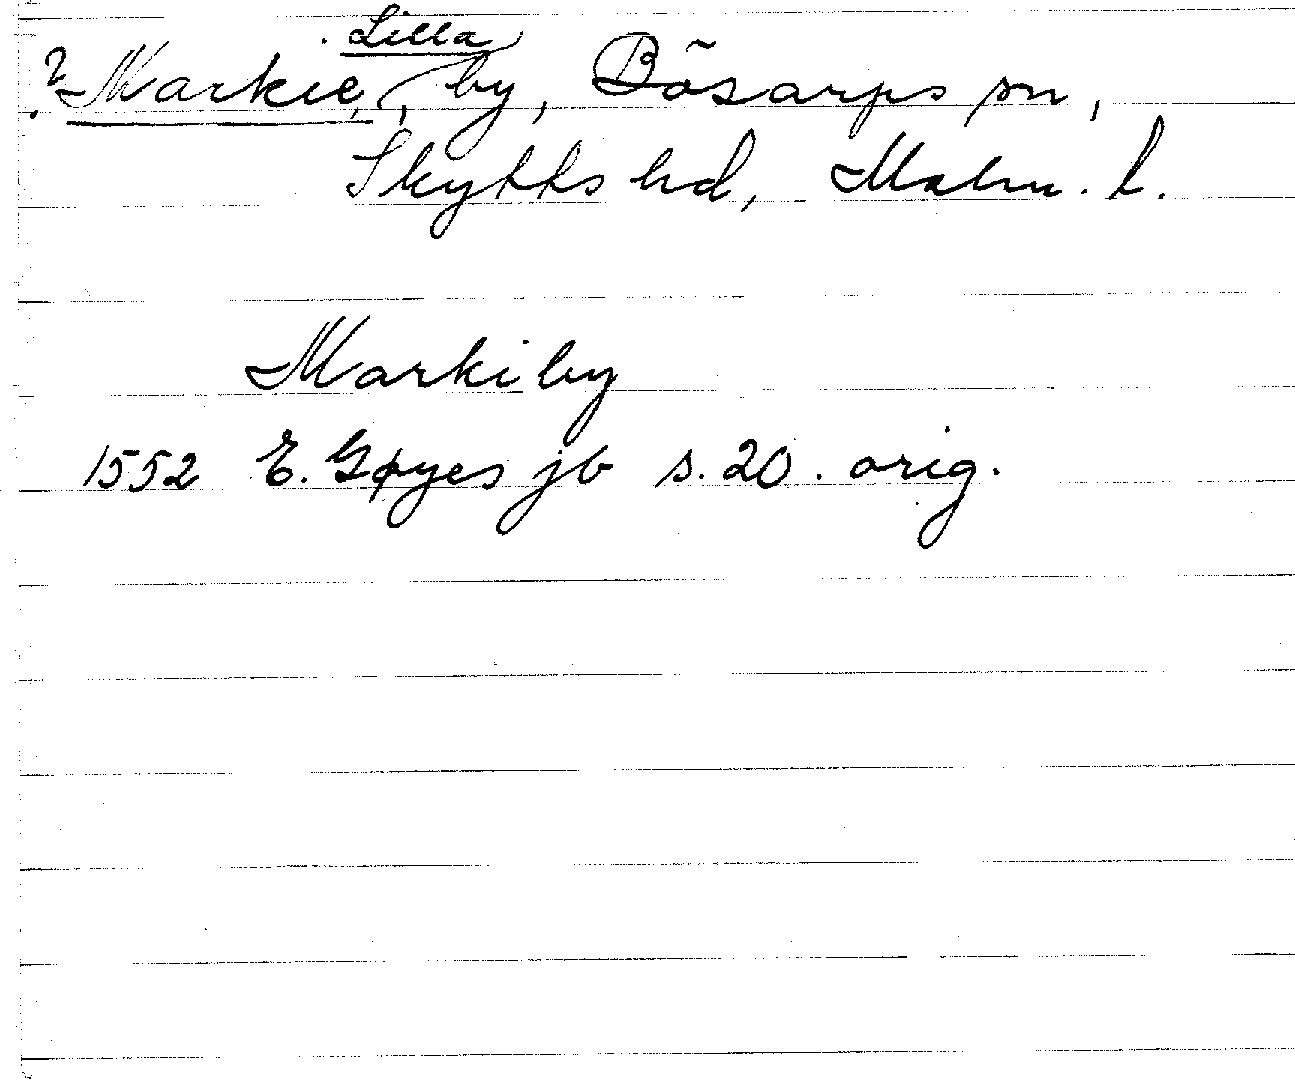 Lilla
? Markie, by, Bösarps sn,
Skytts hd, Malm. l.
Markiby
1552 E. Gøyes jb s. 20. orig.